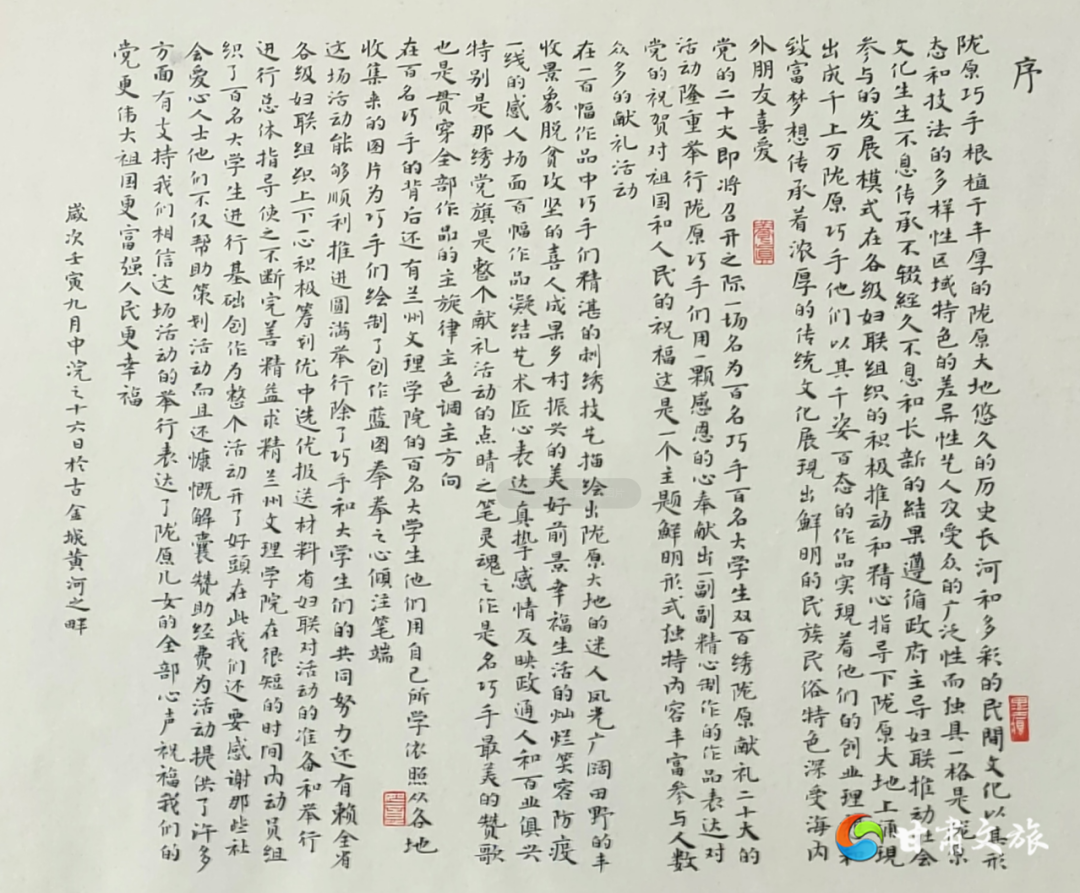 序
陇原巧手根植于丰厚的陇原大地悠久的历史长河和多彩的民間文化以其形
态和技法的多样性区域特色的差异性艺人及受众的广泛性而独具一格是陇原
文化生生不息传承不辍经久不息和长新的结果遵循政府主导妇联推动社会
参与的发展模式在各级妇联组织的积极推动和精心指导下陇原大地上涌現
出成千上万陇原巧手他们以其千姿百态的作品实现着他们的创业理
致富梦想传承着浓厚的传统文化展现出鲜明的民族民俗特色深受海内
外朋友喜爱
党的二十大即将召开之际一场名为百名巧手百名大学生双百绣陇原献礼二十大的
活动隆重举行陇原巧手们用一颗感恩的心奉献出一副副精心制作的作品表达对
党的祝贺对祖国和人民的祝福这是一个主题鲜明形式独特内容丰富参与人数
众多的献礼活动
在一百幅作品中巧手们精湛的刺绣技艺描绘出陇原大地的迷人风光广阔田野的丰
收景象脱贫攻坚的喜人成果乡村振兴的美好前景幸福生活的灿烂笑容防疫
一线的感人场面百幅作品凝结艺术匠心表达真挚感情反映政通人和百业俱兴
特别是那绣党旗是整个献礼活动的点睛之笔灵魂之作是名巧手最美的赞歌
也是贯穿全部作品的主旋律主色调主方向
在百名巧手的背后还有兰州文理学院的百名大学生他们用自己所学依照从各地
收集来的图片为巧手们绘制了创作蓝图拳拳之心倾注笔端
这场活动能够顺利推进圆满举行除了巧手和大学生们的共同努力还有赖全省
各级妇联组织上下一心积极筹划优中选优报送材料省妇联对活动的准备和举行
进行总体指导使之不断完善精益求精兰州文理学院在很短的时间内动员组
织了百名大学生进行基础创作为整个活动开了好頭在此我们还要感谢那些社
会爱心人士他们不仅帮助策划活动而且还慷慨解囊赞助经费为活动提供了许多
方面有支持我们相信这场活动的举行表达了陇原儿女的全部心声祝福我们的
党更伟大祖国更富强人民更幸福
岁次壬寅九月中浣之十六日於古金城黄河之畔
甘肃文旅